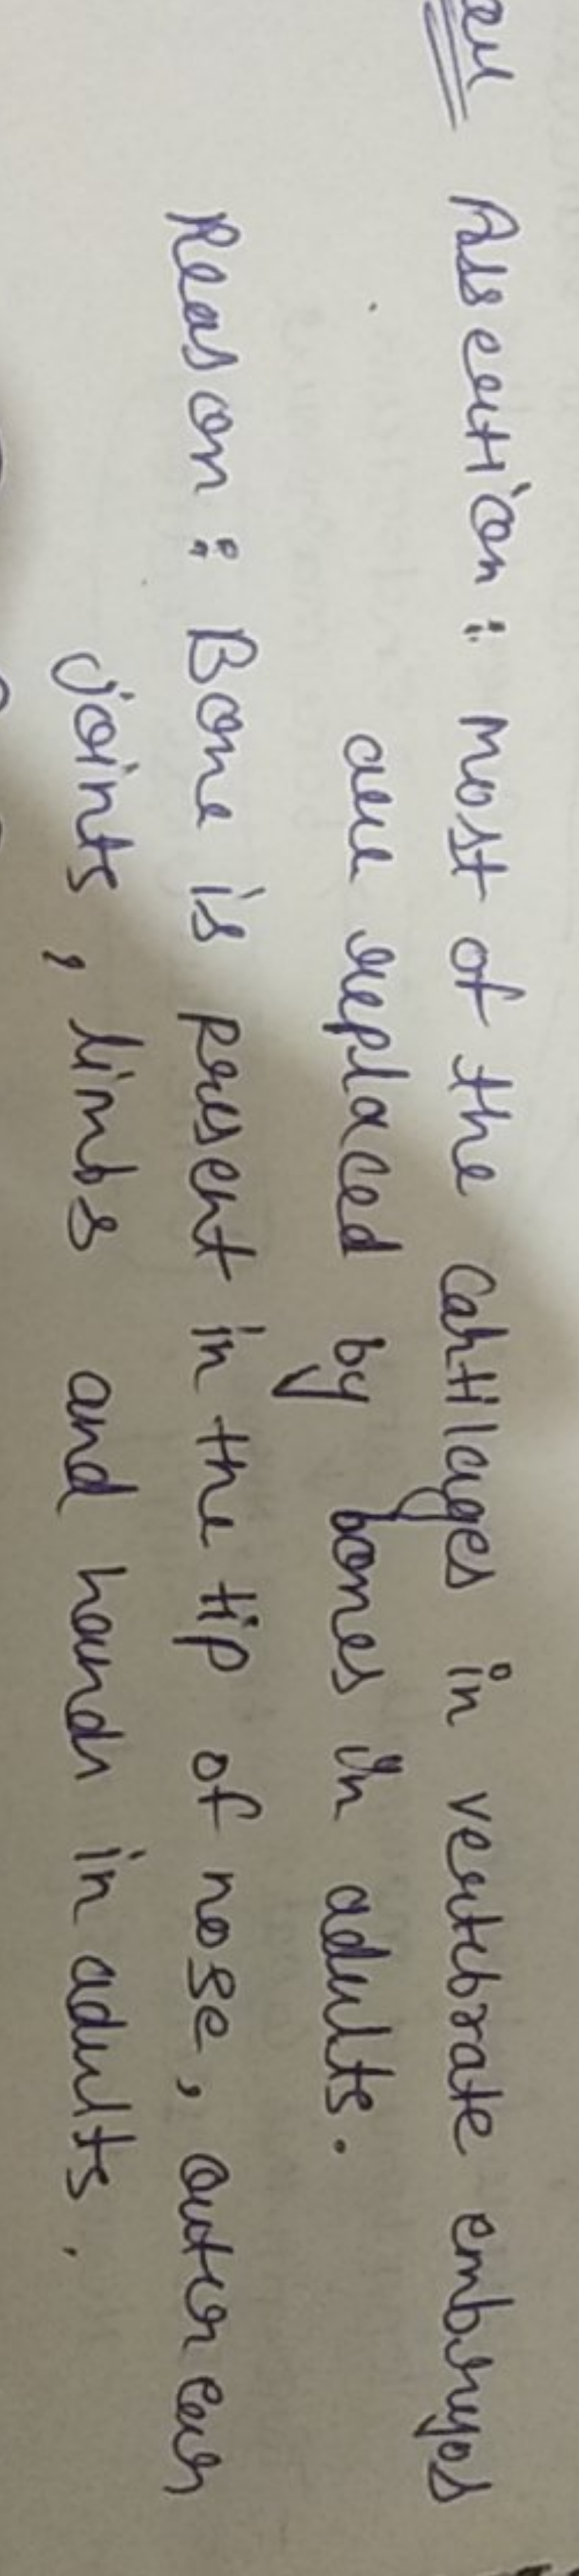 Assertion : most of the cartilages in vertebrate embryos
are replaced by bones in adults.
Reason : Bone is present in the tip of nose, outer ear
joints, limbs and hands in adults.